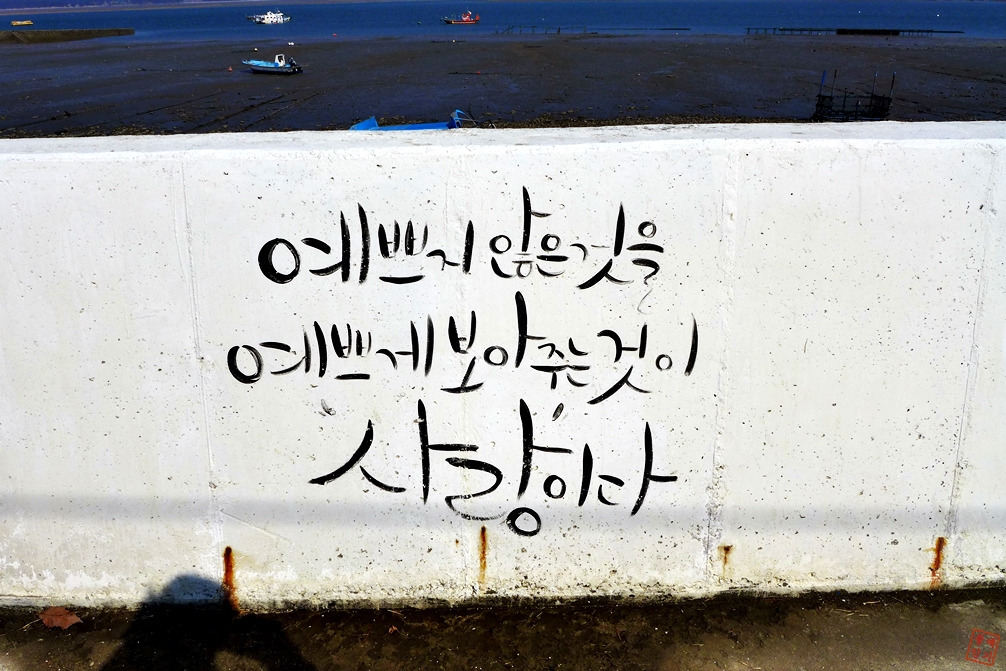 예쁘지 않은 것을
예쁘게 보아주는 것이
사랑이다